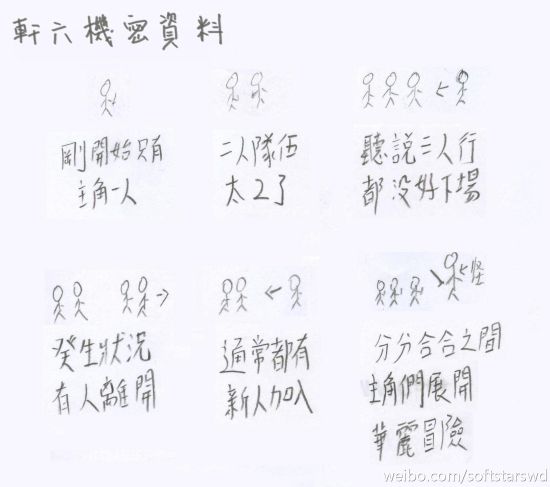 軒六機密資料
剛開始只有
主角一人
二人隊伍
太2了
聽說三人行
都沒好下場
發生狀況
有人離開
通常都有
新人加入
怪
分分合合之間
主角們展開
華麗冒險
weibo.com/softstarswd